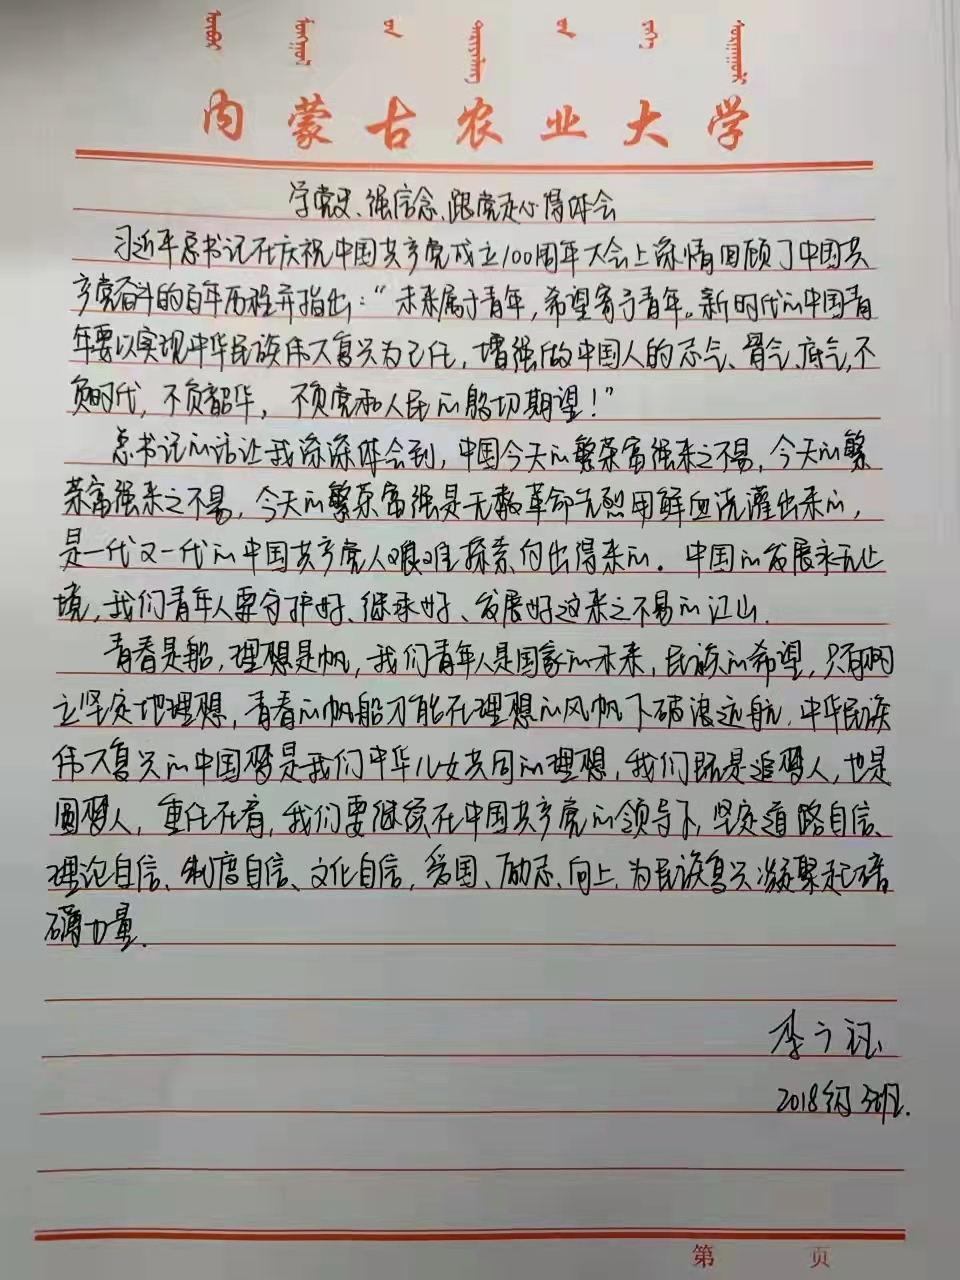 内蒙古农业大学
学党史、强信念、跟党走心得体会
习近平总书记在庆祝中国共产党成立100周年大会上深情回顾了中国共
产党奋斗的百年历程并指出："未来属于青年，希望寄予青年。新时代的中国青
年要以实现中华民族伟大复兴为己任，增强做中国人的志气、骨气、底气，不
负时代，不负韶华，不负党和人民的殷切期望！"
总书记的话让我深深体会到，中国今天的繁荣富强来之不易，今天的繁
荣富强来之不易，今天的繁荣富强是无数革命先烈用鲜血浇灌出来的，
是一代又一代的中国共产党人艰难探索付出得来的。中国的发展永无止
境，我们青年人要守护好、继承好、发展好这来之不易的江山.
青春是船，理想是帆，我们青年人是国家的未来，民族的希望，只有树
立坚定地理想，青春的帆船才能在理想的风帆下破浪远航.中华民族
伟大复兴的中国梦是我们中华儿女共同的理想，我们既是追梦人，也是
圆梦人，重任在肩，我们要继续在中国共产党的领导下，坚定道路自信、
理论自信、制度自信、文化自信，爱国、励志、向上，为民族复兴凝聚起磅
礴力量.
李
2018级
第 页